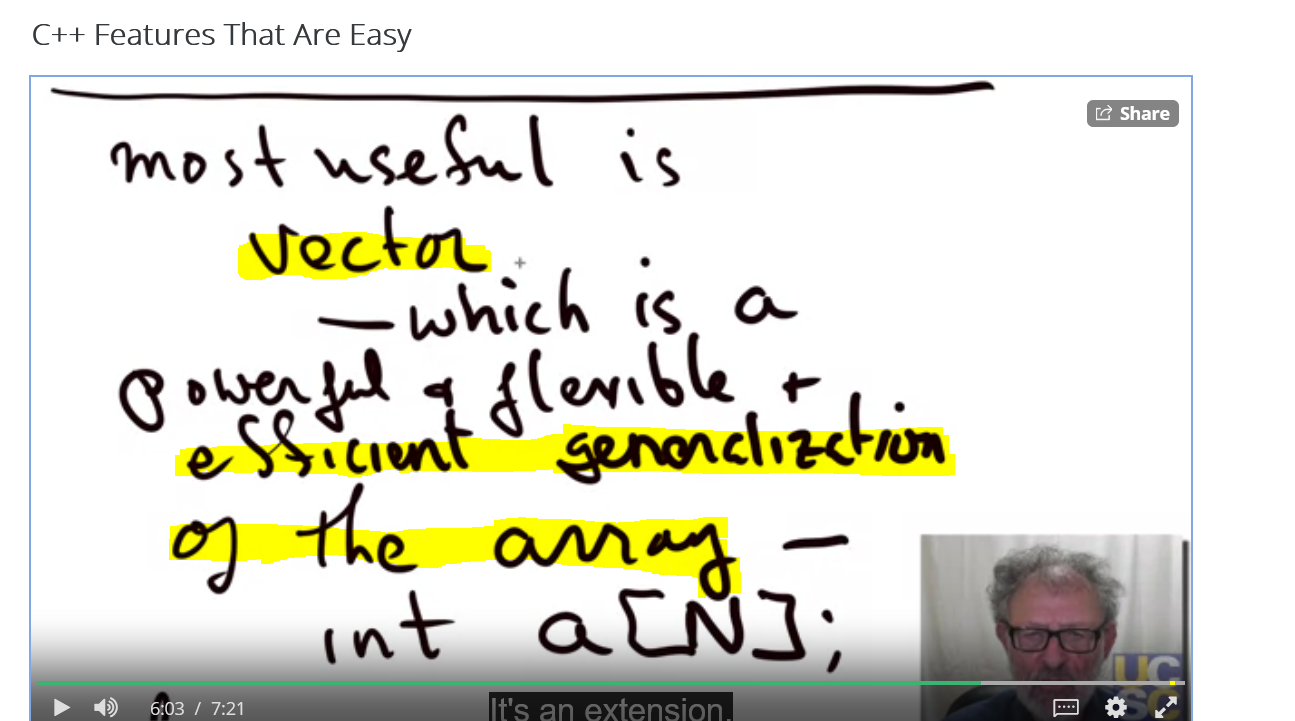 C++ Features That Are Easy
Share
most useful is
vector
— which is a
powerful & flexible +
efficient generalization
of the array —
int a[N];
UC
SC
6:03 / 7:21
It's an extension.